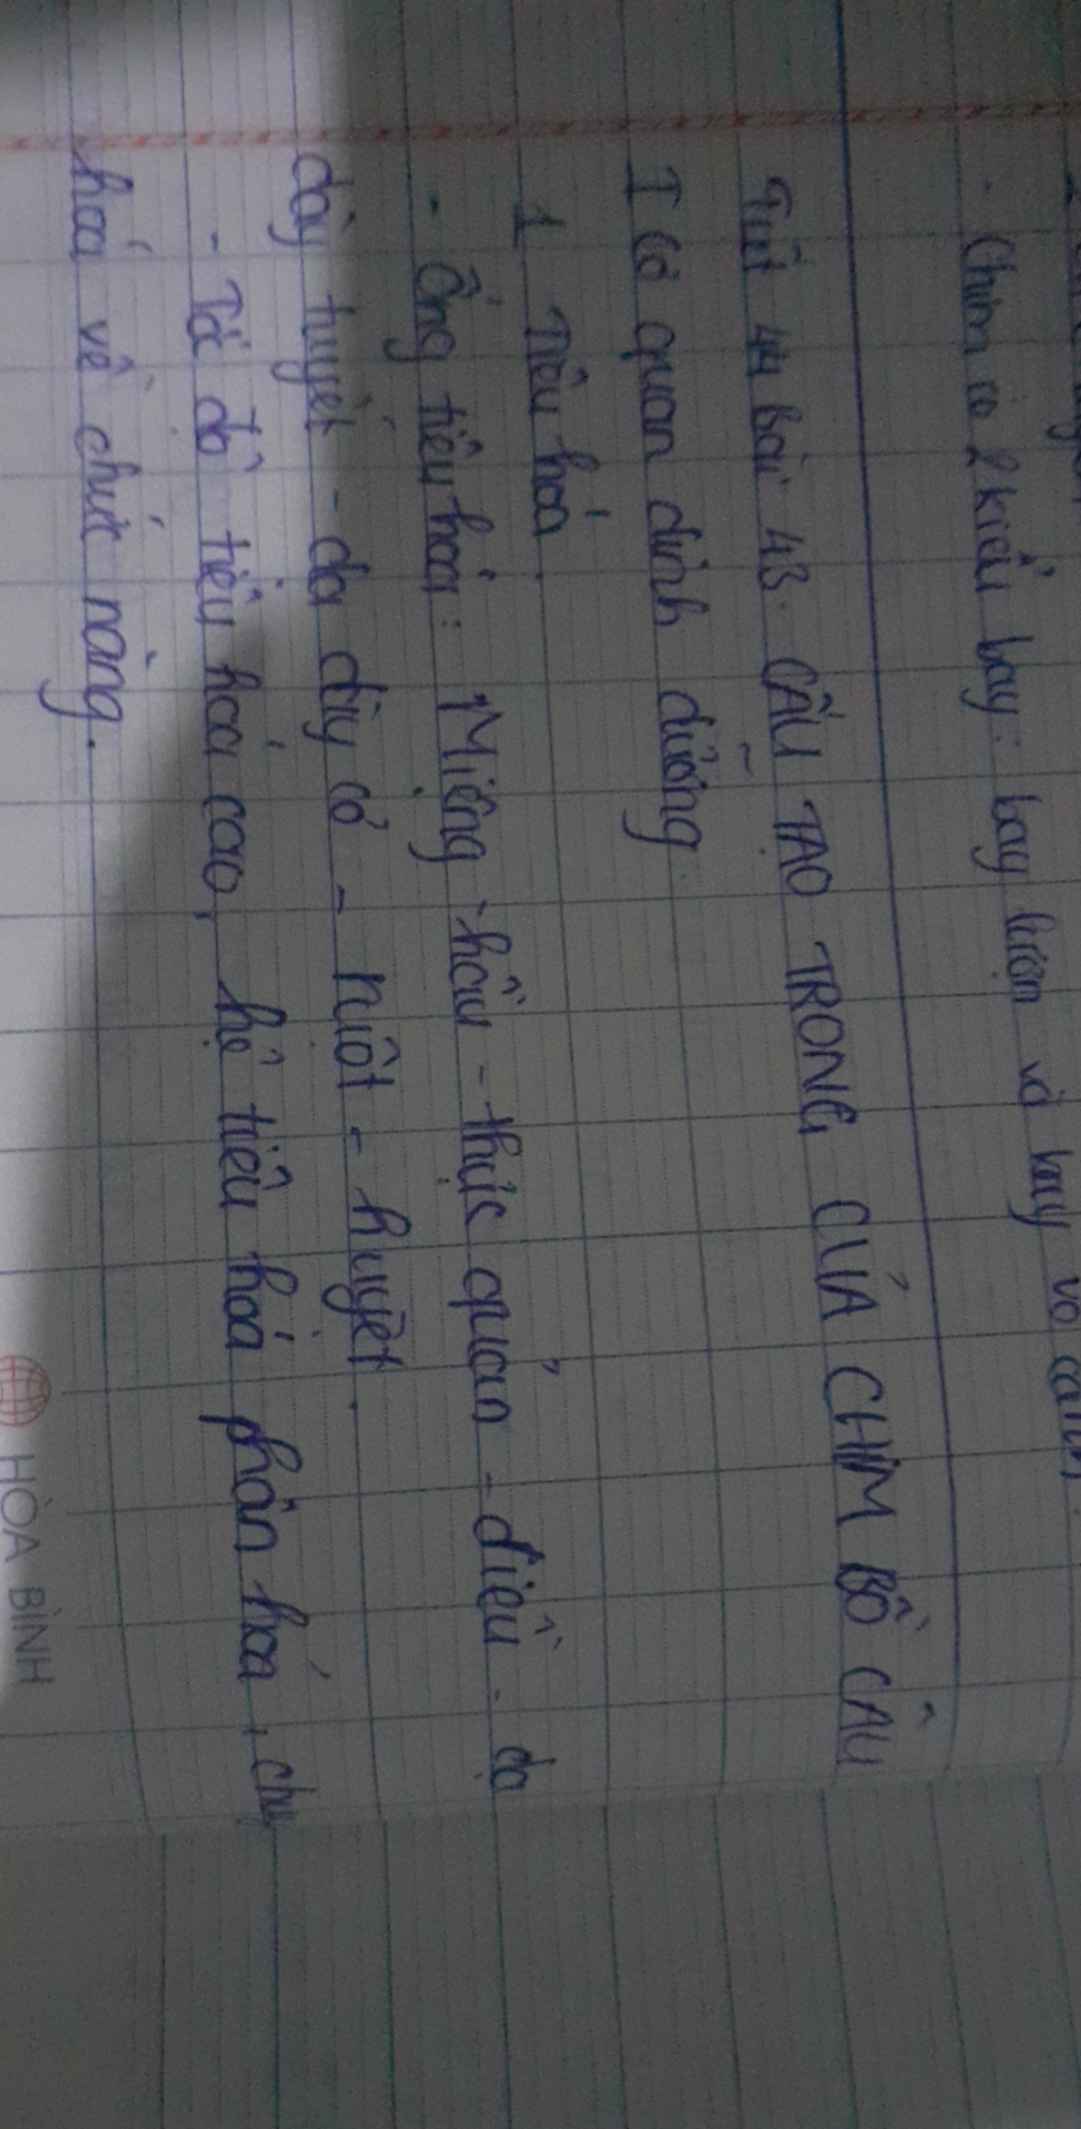 - Chim có 2 kiểu bay: bay lượn và bay vỗ cánh.
Tiết 44 Bài 43. CẤU TẠO TRONG CỦA CHIM BỒ CÂU
I Cơ quan dinh dưỡng
1 Tiêu hoá
- Ống tiêu hoá: Miệng - hầu - thực quản - diều - dạ
dày tuyến - dạ dày cơ - ruột - huyệt.
- Tốc độ tiêu hoá cao, hệ tiêu hoá phân hoá, chu
hoá về chức năng.
HÒA BÌNH